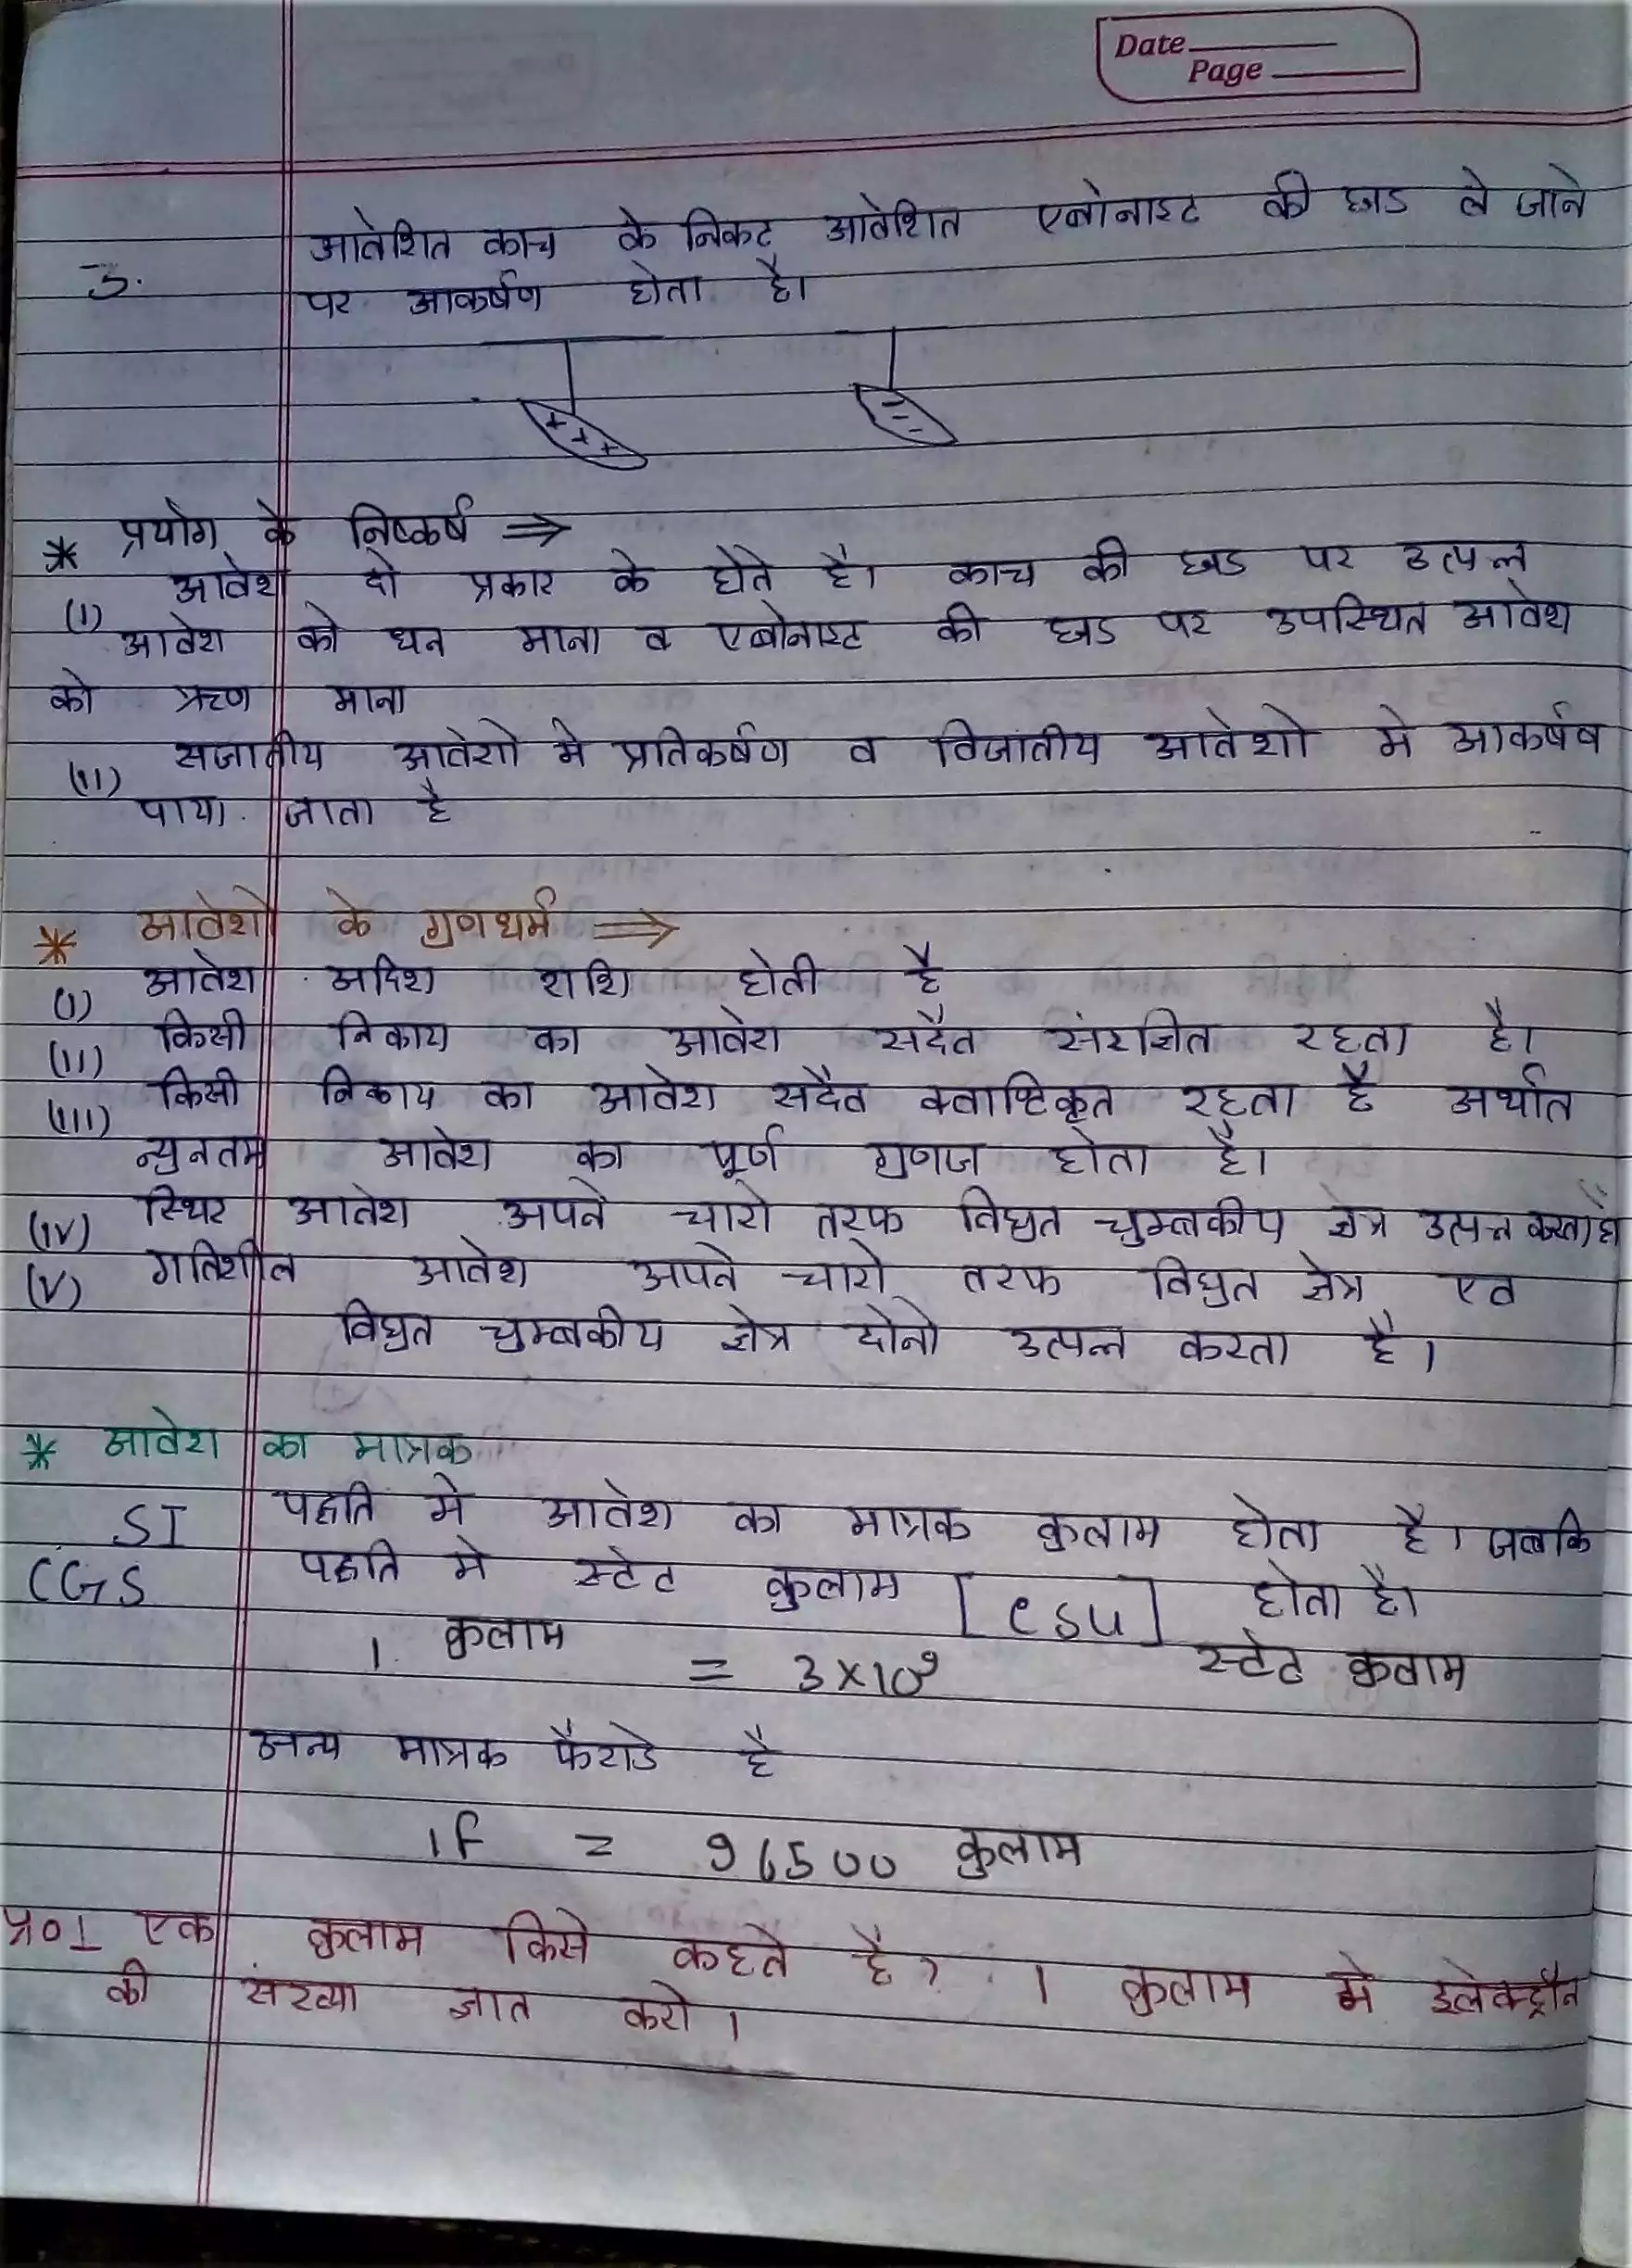 Date
Page
आवेशित काच के निकट आवेशित एबोनाइट की छड ले जाने
3.
पर आकर्षण होता है।
+ + +
- - -
* प्रयोग के निष्कर्ष ⇒
(I) आवेश दो प्रकार के होते है। काच की छड पर उत्पन्न
आवेश को धन माना व एबोनाइट की छड पर उपस्थित आवेश
को ऋण माना
(II) सजातीय आवेशो मे प्रतिकर्षण व विजातीय आवेशो मे आकर्षण
पाया जाता है
* आवेशो के गुणधर्म ⇒
(I) आवेश अदिश राशि होती है
(II) किसी निकाय का आवेश सदैव संरक्षित रहता है।
(III) किसी निकाय का आवेश सदैव क्वाण्टिकृत रहता है अर्थात
न्युनतम आवेश का पूर्ण गुणज होता है।
(IV) स्थिर आवेश अपने चारो तरफ विधुत चुम्बकीय क्षेत्र उत्पन्न करता है
(V) गतिशील आवेश अपने चारो तरफ विधुत क्षेत्र एव
विधुत चुम्बकीय क्षेत्र दोनो उत्पन्न करता है।
* आवेश का मात्रक
SI पद्धति मे आवेश का मात्रक कुलाम होता है। जबकि
CGS पद्धति मे स्टेट कुलाम [esu] होता है।
1 कुलाम = 3×10⁹ स्टेट कुलाम
अन्य मात्रक फैराडे है
1f = 96500 कुलाम
प्र०1 एक कुलाम किसे कहते है? 1 कुलाम मे इलेक्ट्रौन
की संख्या ज्ञात करो।